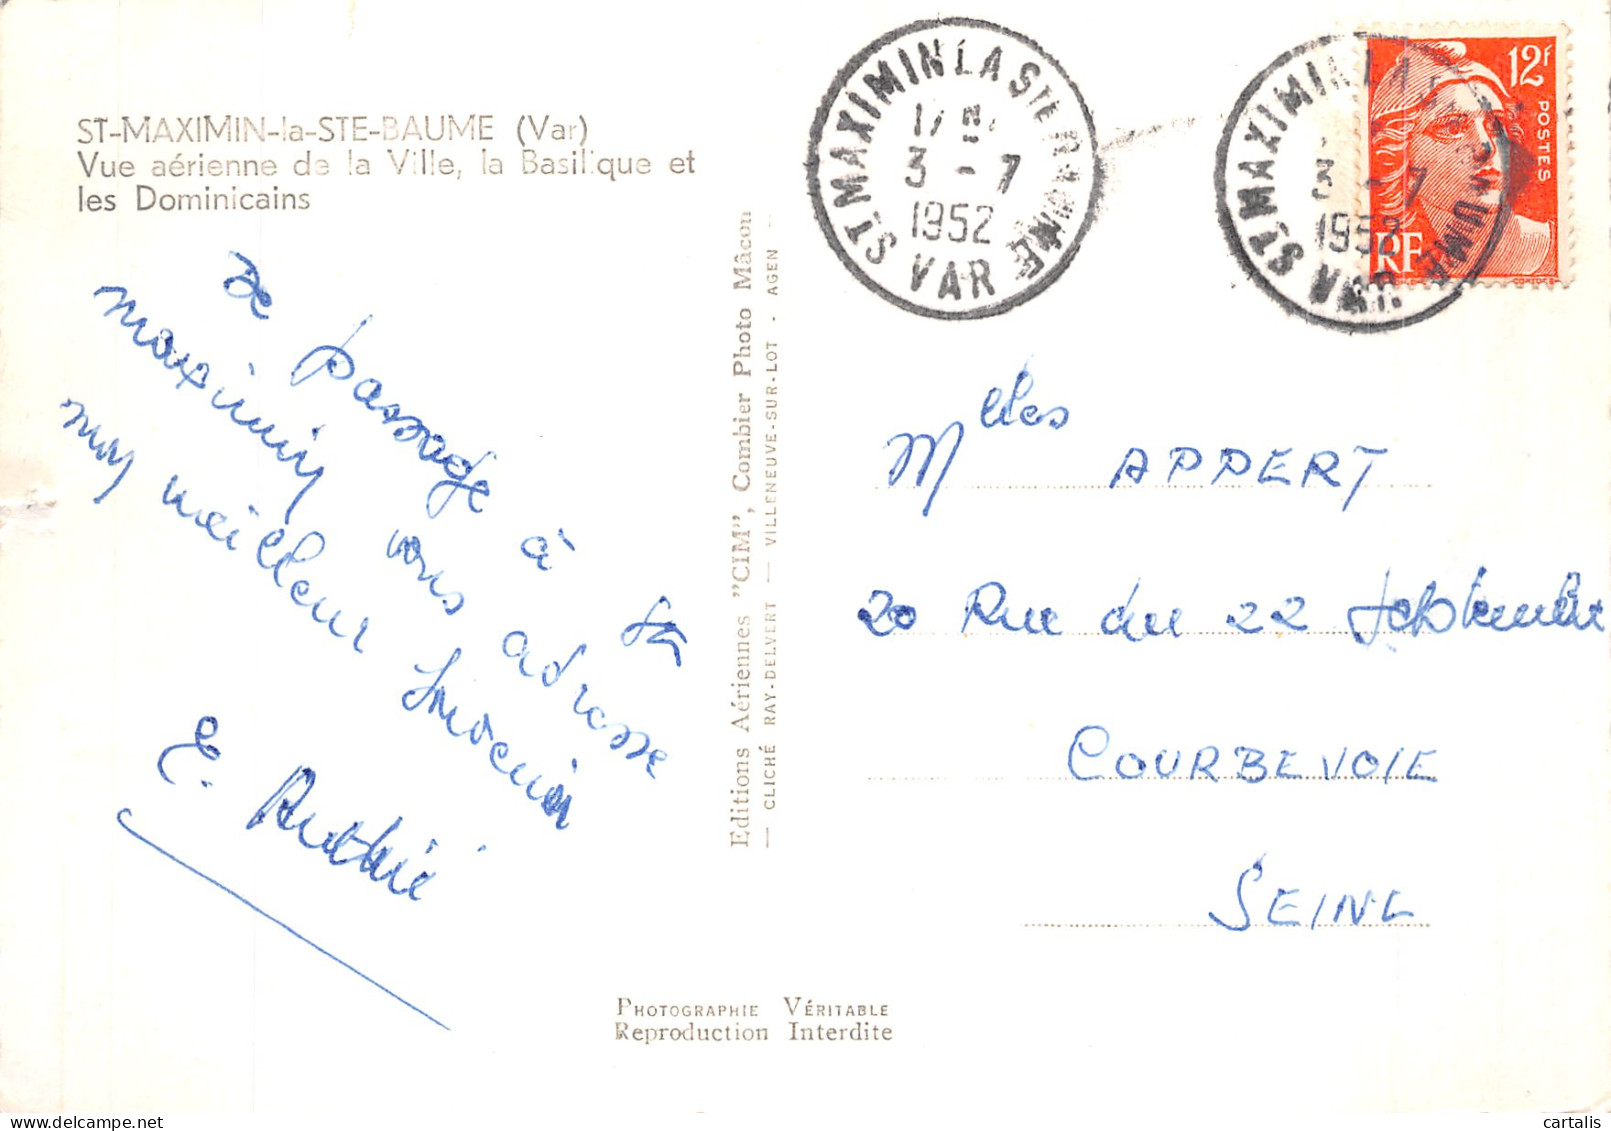 ST-MAXIMIN-la-STE-BAUME (Var)
Vue aérienne de la Ville, la Basilique et
les Dominicains
De passage à St
maximin vous adresse
mon meilleur souvenir
E.
Editions Aériennes "CIM", Combier Photo Mâcon
— CLICHÉ RAY-DELVERT — VILLENEUVE-SUR-LOT - AGEN —
ST MAXIMIN LA STE BAUME
3 - 7
1952
VAR
ST MAXIMIN LA STE BAUME
3 - 7
1952
VAR
12F
POSTES
RF
Melles APPERT
20 Rue du 22 Septembre
COURBEVOIE
SEINE
PHOTOGRAPHIE VÉRITABLE
Reproduction Interdite
cartalis